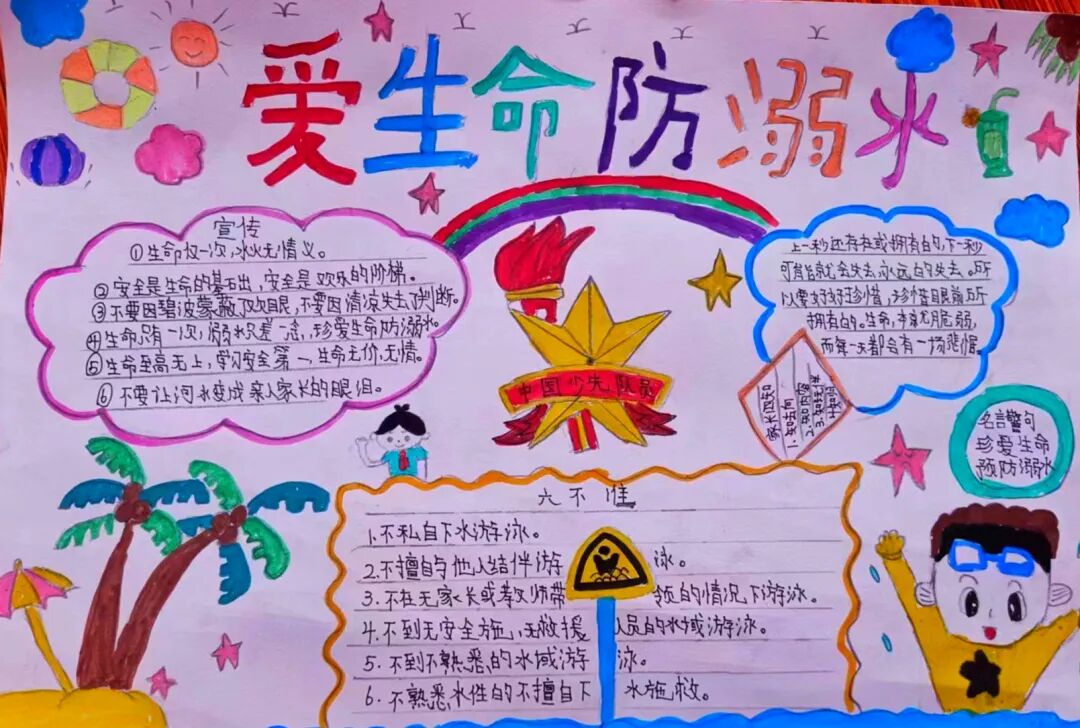 爱生命防溺水
宣传
①生命仅一次,水火无情义。
②安全是生命的基础出,安全是欢乐的阶梯。
③不要因碧波蒙蔽了双眼,不要因清凉失去了判断。
④生命只有一次,溺水只差一念,珍爱生命防溺水。
⑤生命至高无上,学习安全第一,生命无价,无情。
⑥不要让河水变成亲人家长的眼泪。
中国少先队员
上一秒还存在或拥有的,下一秒
可能就会失去,永远的失去。所
以要好好珍惜,珍惜眼前所
拥有的。生命,本就脆弱,
而每一天都会有一场悲惧。
家长四知
1.知去向
2.知内容
名言警句
珍爱生命
预防溺水
六不准
1.不私自下水游泳。
2.不擅自与他人结伴游泳。
3.不在无家长或教师带领的情况下游泳。
4.不到无安全方施,无救援人员的水域游泳。
5.不到不熟悉的水域游泳。
6.不熟悉水性的不擅自下水施救。